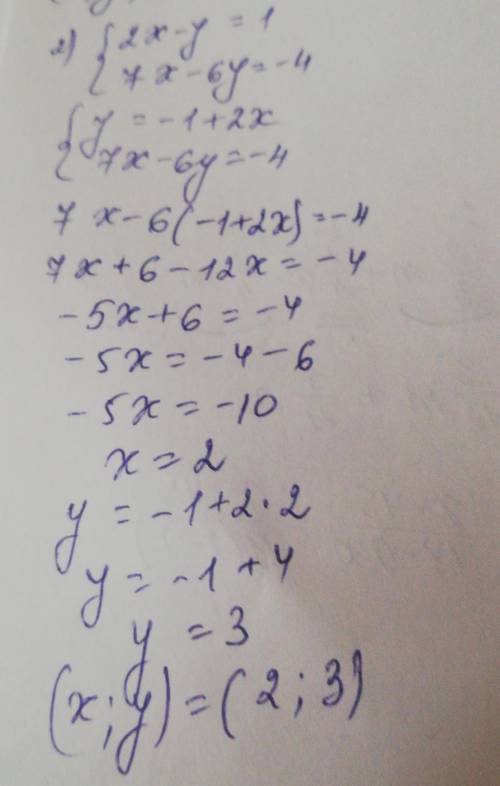 2) { 2x-y = 1
7x-6y=-4
{ y = -1+2x
7x-6y=-4
7x-6(-1+2x)=-4
7x+6-12x=-4
-5x+6=-4
-5x=-4-6
-5x=-10
x=2
y=-1+2·2
y=-1+4
y=3
(x;y)=(2;3)